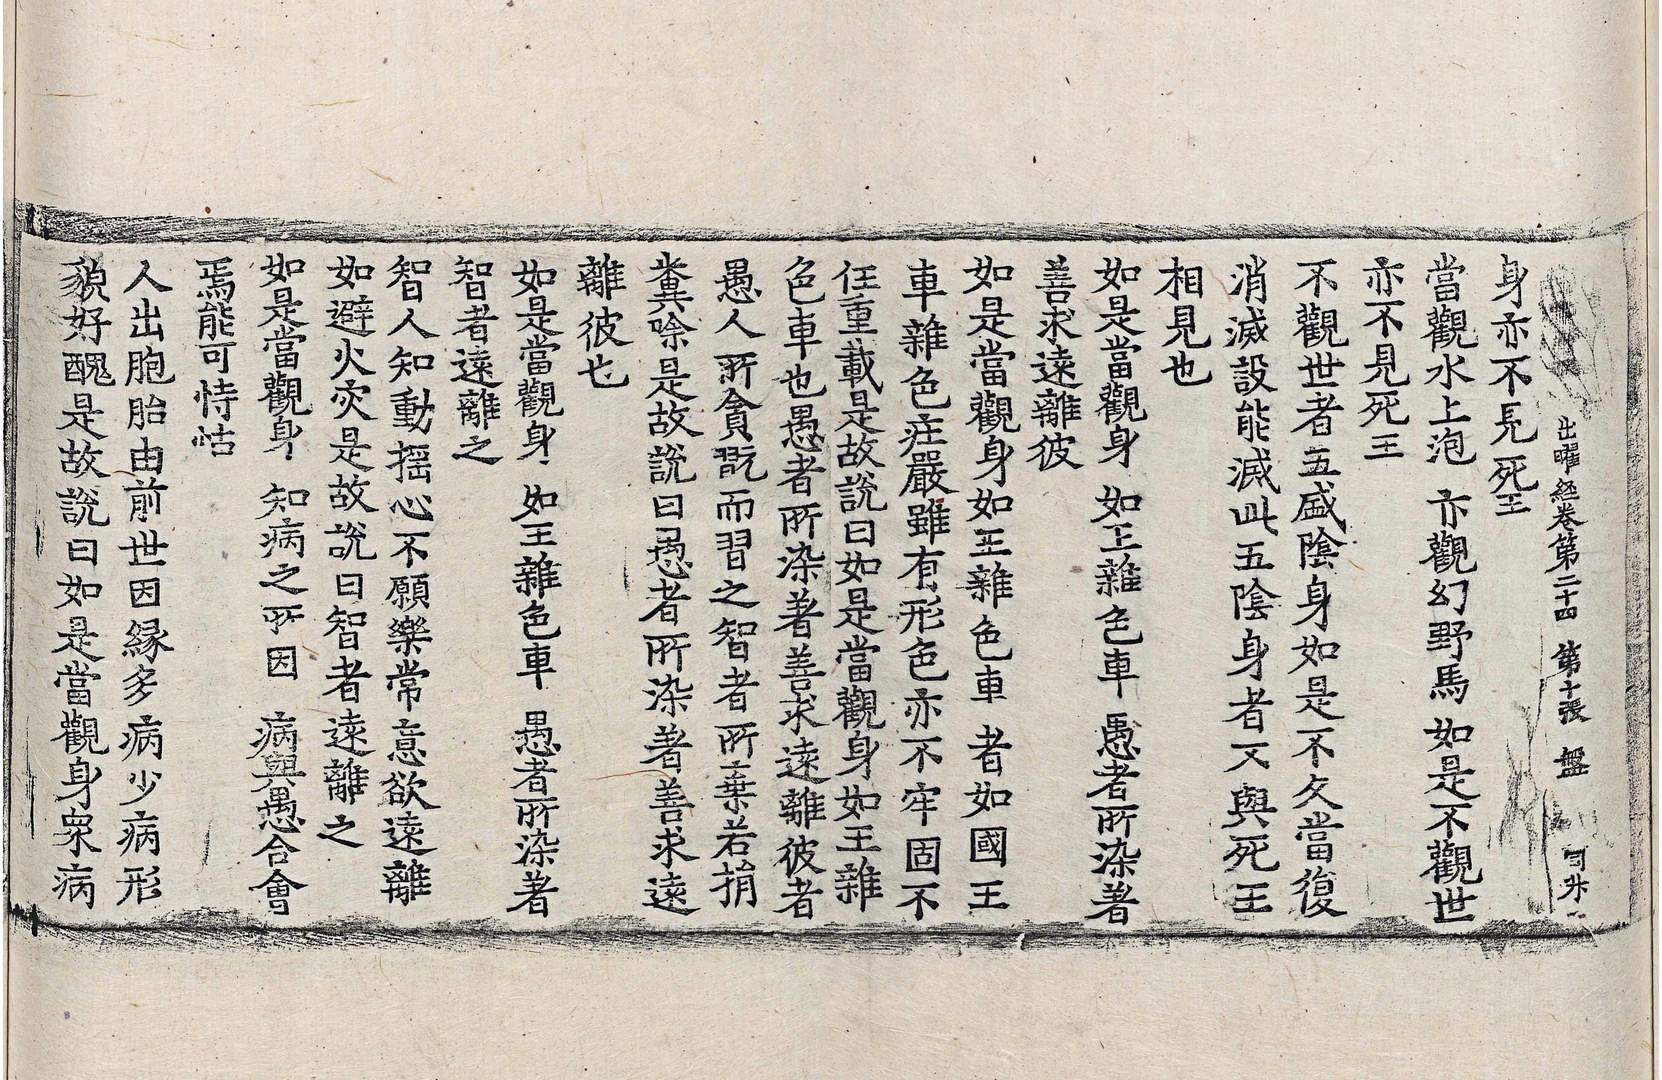 出曜経卷第二十四 第十張 盤
身亦不見死王
當觀水上泡 亦觀幻野馬 如是不觀世
亦不見死王
不觀世者五盛陰身如是不久當復
消滅設能滅此五陰身者又與死王
相見也
如是當觀身 如王雜色車 愚者所染著
善求遠離彼
如是當觀身如王雜色車 者如國王
車雜色庄嚴雖有形色亦不牢固不
任重載是故說曰如是當觀身如王雜
色車也愚者所染著善求遠離彼者
愚人所貪翫而習之智者所棄若捐
糞除是故說曰愚者所染著善求遠
離彼也
如是當觀身 如王雜色車 愚者所染著
智者遠離之
智人知動搖心不願樂常意欲遠離
如避火灾是故說曰智者遠離之
如是當觀身 知病之所因 病與愚合會
焉能可恃怙
人出胞胎由前世因緣多病少病形
貌好醜是故說曰如是當觀身衆病